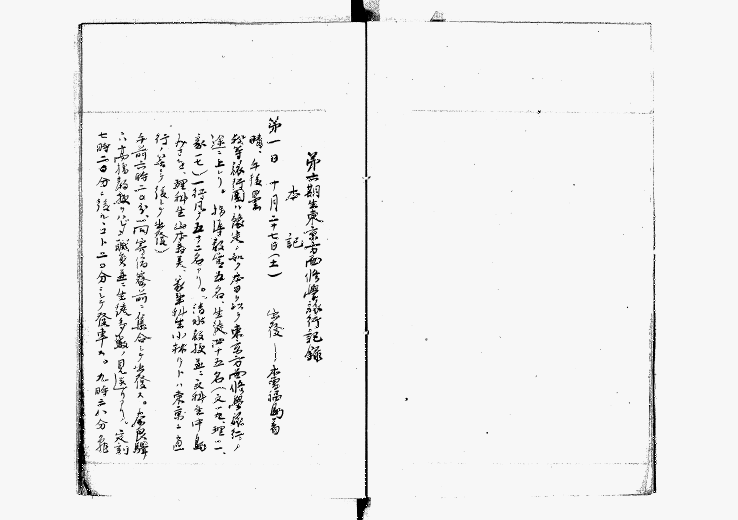 第六期生東京方面修學旅行記録
本記
第一日 十月二十七日(土) 出發―
晴、午後曇
旅行團ハ豫定ノ如ク 東京方面修學旅行ノ
途ニ上レリ。指導教官五名、生徒四十五名(文一九、理一一、
家一七)一行凡テ五十二名ナリ。清水教授並ニ文科生中島
みさを、理科生山本壽美、家事科生小林リトハ東京ニ直
行ノ筈ニテ後レテ出發)
午前六時二〇分、一同寄宿寮前ニ集合シテ出發ス。奈良驛
ニハ高橋教授ヲハジメ職員並ニ生徒多數ノ見送リアリ。定刻
七時二〇分ニ後ルヽコト二〇分ニシテ發車ス。九時二八分龜